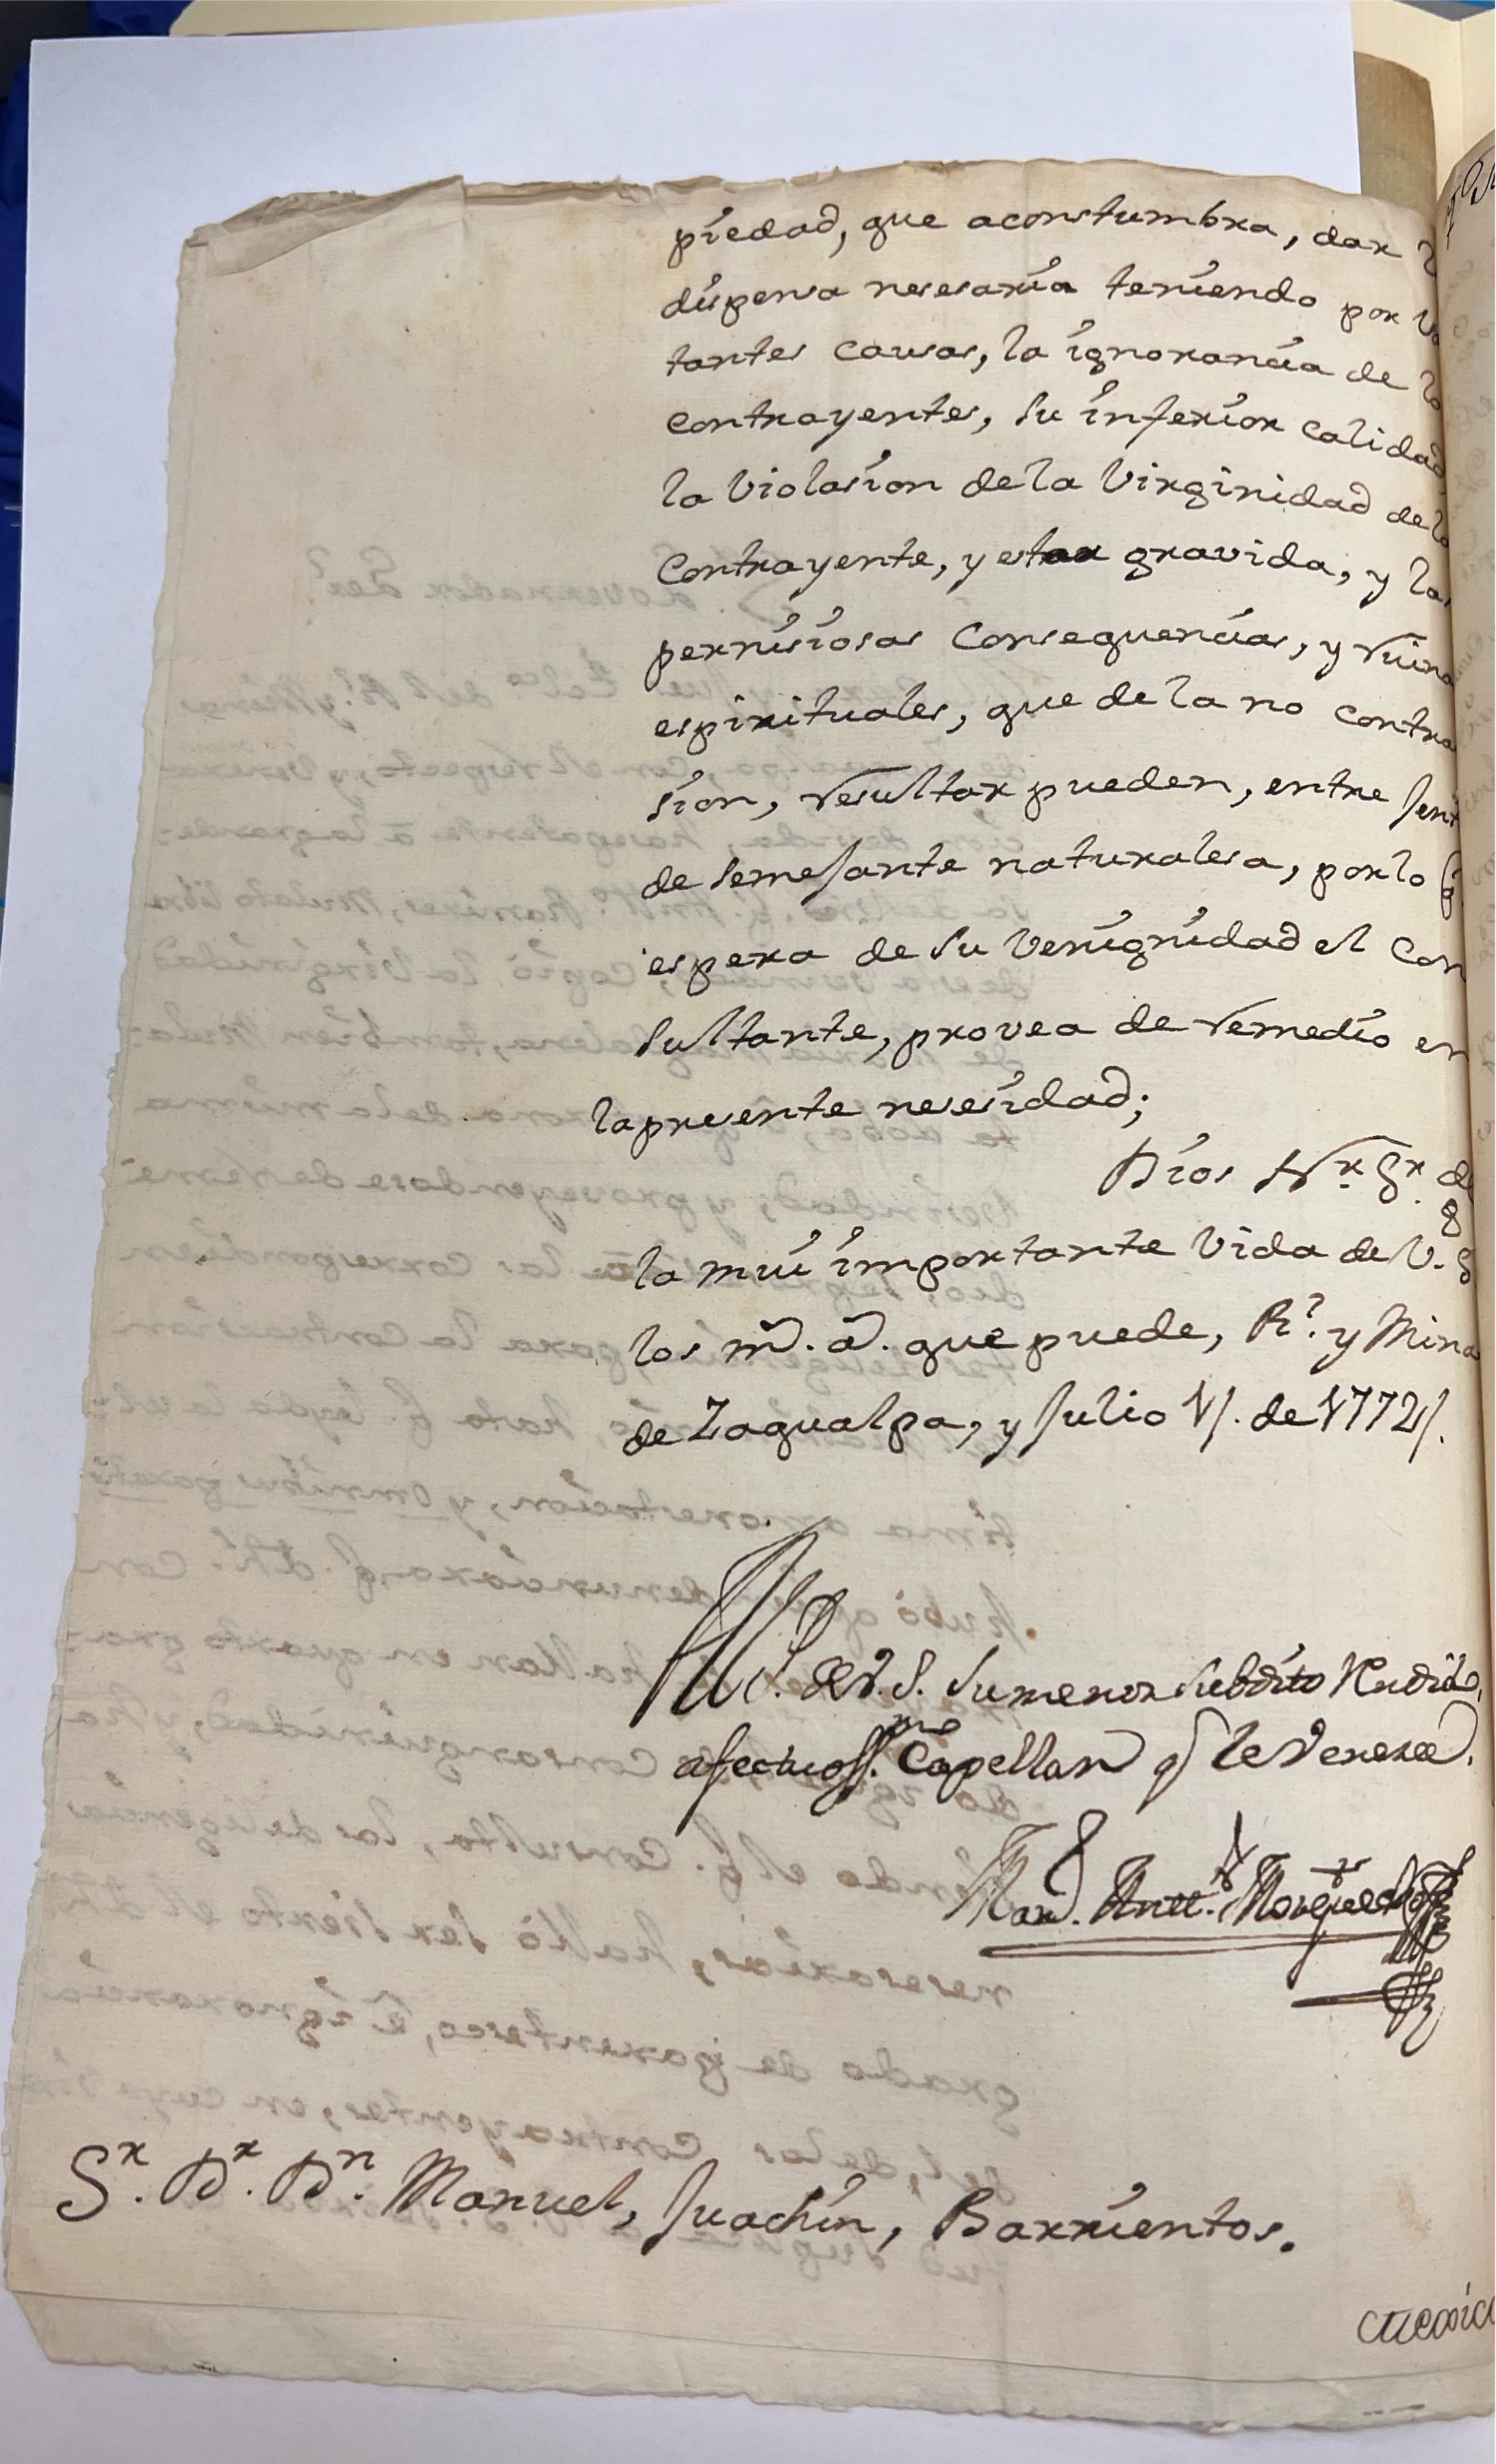 piedad, que aconstumbra, dar
dispensa nesesaria teniendo por
tantes causas, la ignorancia de
contrayentes, su inferior calidad
la violasion de la Virginidad de la
contrayente, y estar gravida, y las
pernisiosas consequencias, y ruina
espirituales, que de la no contra
sion, resultar pueden, entre Jent
de semejante naturalesa, por lo q
espera de su venignidad el con
sultante, provea de remedio en
la presente nesesidad;
Dios Nr. Sr.
la mui importante vida de V. S
los m. a. que puede, Rl. y Mina
de Zagualpa, y Julio 1/. de 1772/.
S. de V. S. su menor subdito Rendido,
afectuoss.mo Capellan q le Venera.
Man. Antt.
Sr. Dr. Dn. Manuel, Juachin, Barrientos.